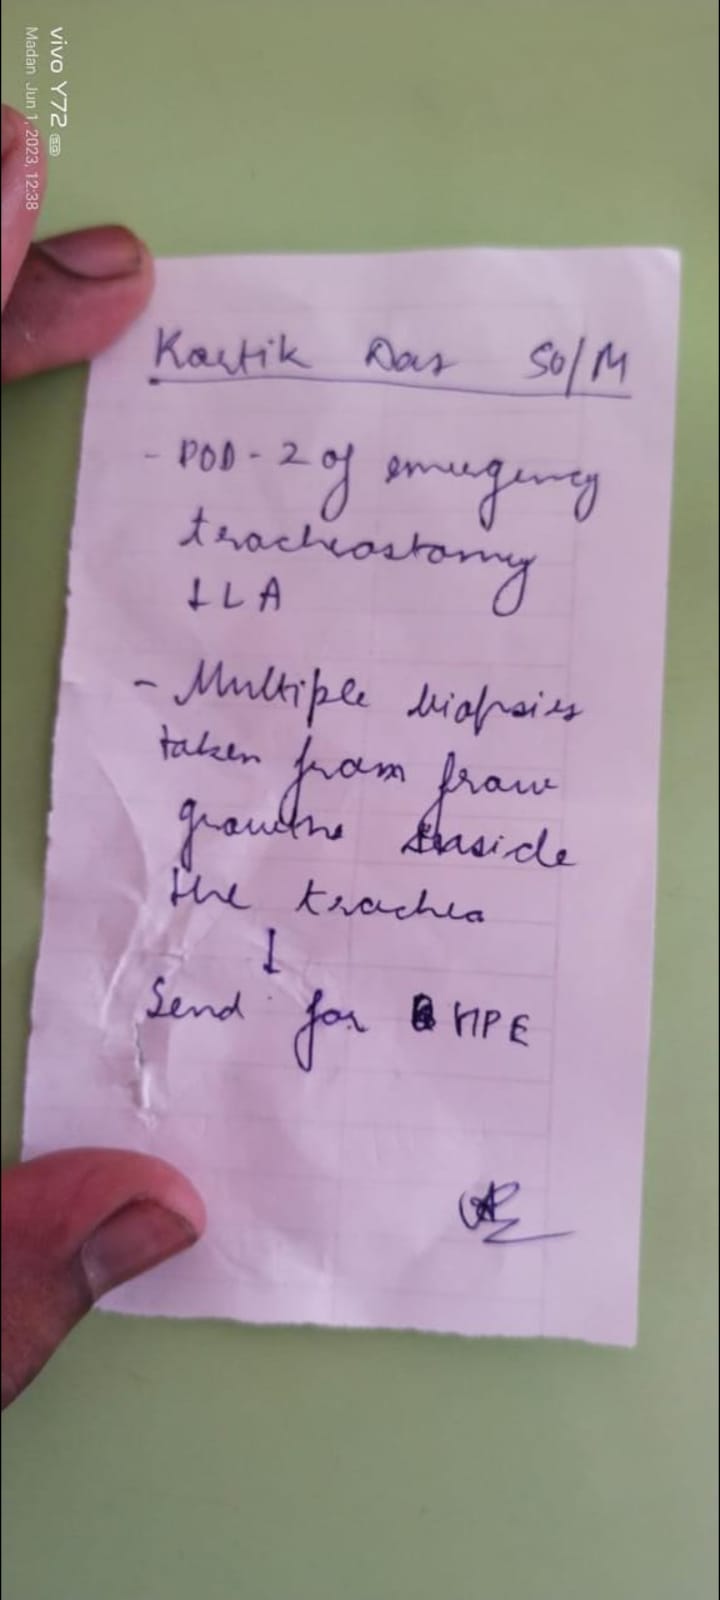 vivo Y72 5G
Madan Jun 1, 2023, 12:38
Kartik Das 50/M
- POD-2 of emergency
tracheostomy
↓LA
- Multiple biopsies
taken from from
growths inside
the trachea
↓
Send for HPE